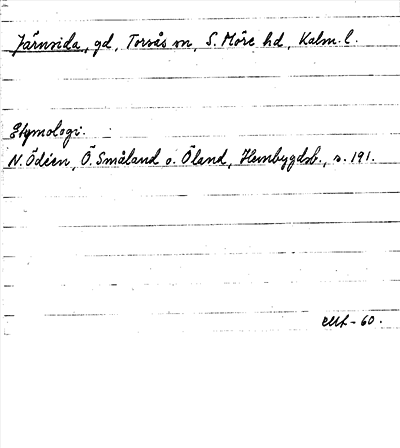 Järnsida, gd, Torsås sn, S. Möre hd, Kalm. l.
Etymologi.
N. Ödéen, Ö. Småland o. Öland, Hembygdsb., s. 191.
-60.